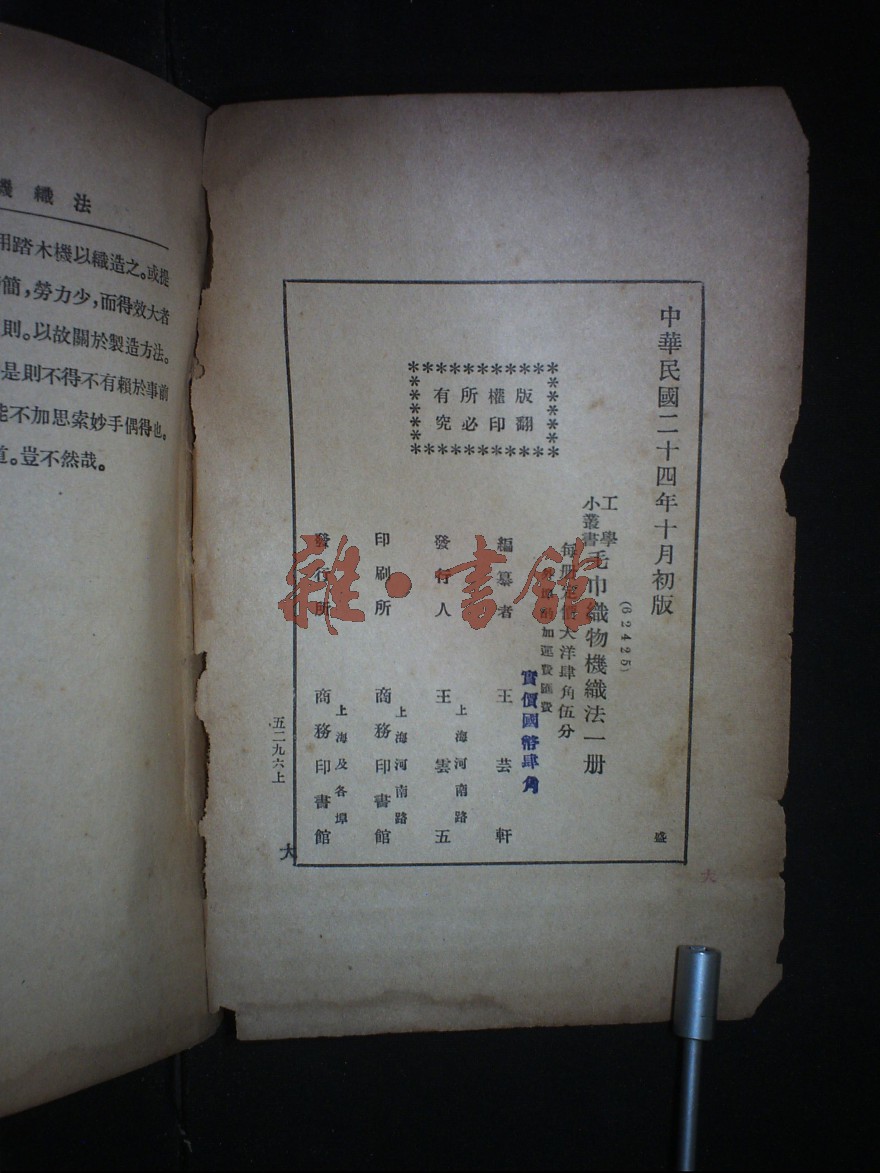 中華民國二十四年十月初版
(62425)
工學小叢書 毛巾織物機織法一册
每册定價大洋肆角伍分
外埠酌加運費匯費
實價國幣肆角
版權所有
翻印必究
編纂者 王芸軒
發行人 王雲五
上海河南路
印刷所 商務印書館
上海河南路
發行所 商務印書館
上海及各埠
盛
五二九六上
大
大
織法
用踏木機以織造之。或提
簡，勞力少，而得效大者
則。以故關於製造方法。
是則不得不有賴於事前
不加思索妙手偶得也。
道。豈不然哉。
雜·書館